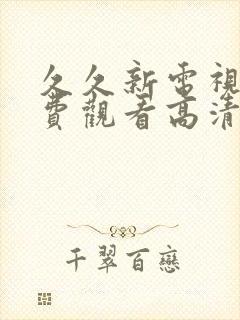 久久新電視
費觀看高清
千翠百戀